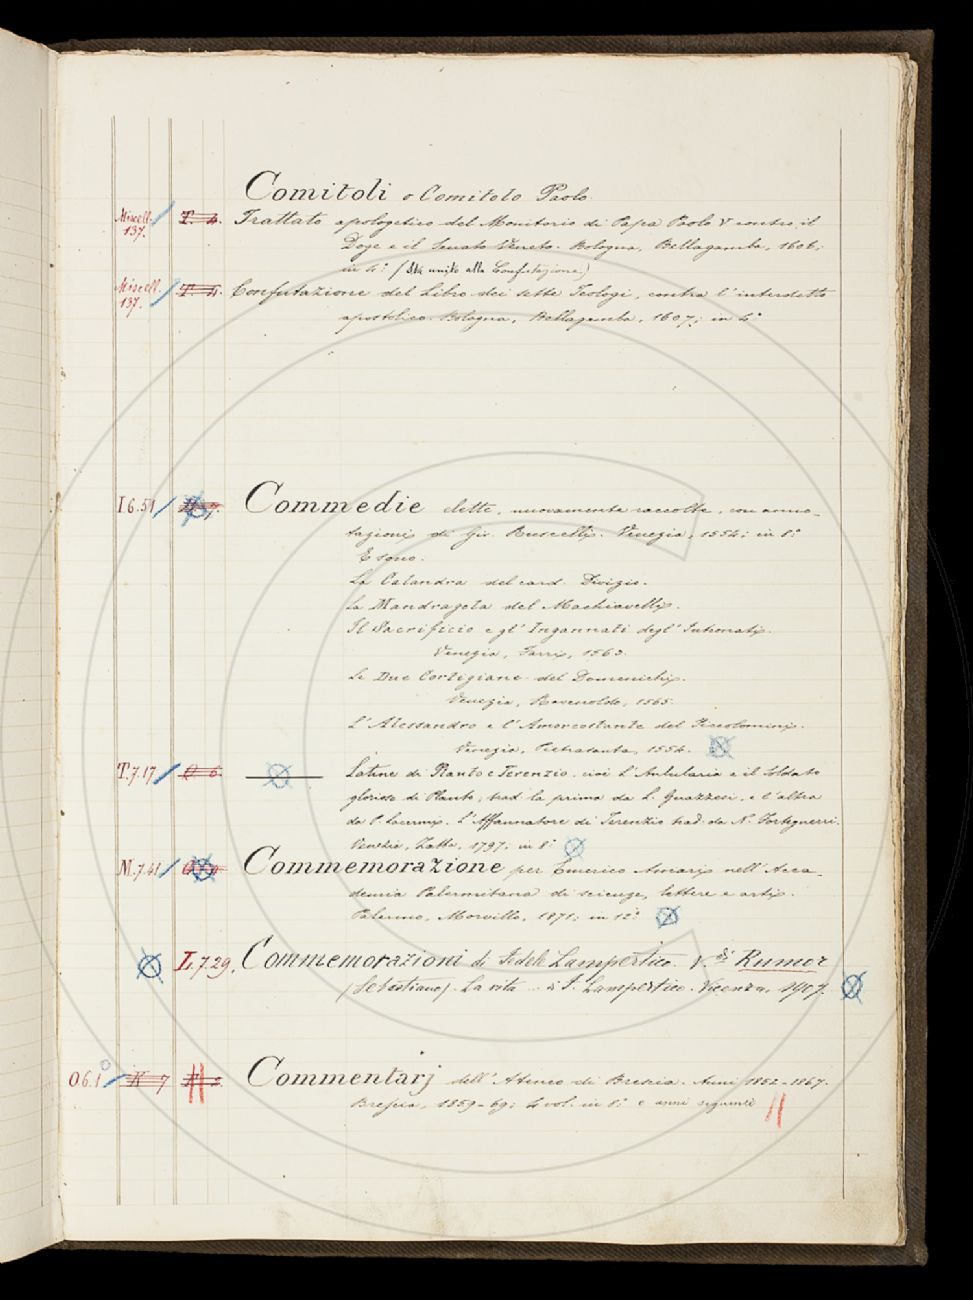 Comitoli o Comitolo Paolo
Miscell. 137. T. 4. Trattato apologetico del Monitorio di Papa Paolo V contro il
Doge e il Senato Veneto. Bologna, Bellagamba, 1606;
in 4.° (Sta unito alla Confutazione)
Miscell. 137. T. 4. Confutazione del Libro dei sette Teologi, contra l'interdetto
apostolico. Bologna, Bellagamba, 1607; in 4.°
I 6.51 Commedie elette, nuovamente raccolte, con anno-
tazioni di Gir. Ruscelli. Venezia, 1554; in 8.°
E sono:
La Calandra del card. Divizio.
La Mandragola del Machiavelli.
Il Sacrificio e gl'Ingannati degl'Intronati.
Venezia, 1563.
Le Due Cortigiane del Domenichi.
Venezia, 1565.
L'Alessandro e l'Amorcostante del Piccolomini.
Venezia, Pietrasanta, 1554.
T.7.17 O 6. Latine di Planto e Terenzio. cioè l'Aulularia e il Soldato
glorioso di Plauto, trad. la prima da L. Guazzesi, e l'altra
da P. L'Affannatore di Terenzio trad. da N. Forteguerri.
Venezia, Zatta, 1797; in 8.°
M.7.41 Commemorazione per Emerico Amari nell'Acca-
demia Palermitana di scienze, lettere e arti.
Palermo, Morvillo, 1871; in 12.°
L.7.29. Commemorazioni di Fedele Lampertico. V. di Rumor
(Sebastiano). La vita ... di F. Lampertico. Vicenza, 1907.
O6.1 K 7 Commentarj dell'Ateneo di Brescia. Anni 1852-1867.
Brescia, 1859-69; 4 vol. in 8.° e anni seguenti